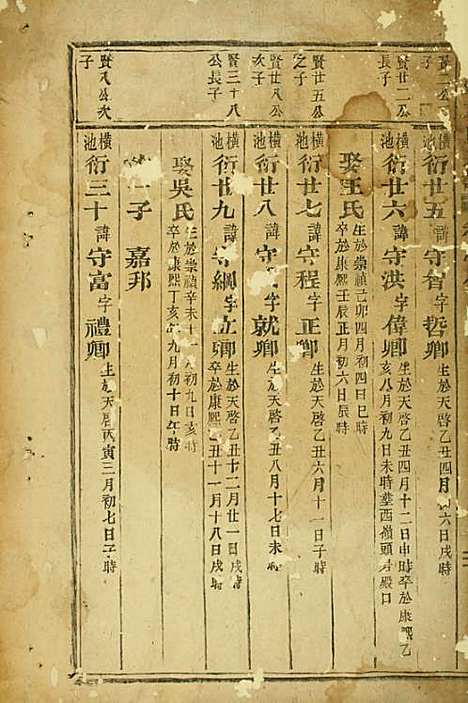 賢二公
子
橫池 衍廿五 諱守智字哲卿 生於天啓乙丑四月初六日戌時
賢廿二公
長子
橫池 衍廿六 諱守洪字偉卿 生於天啓乙丑四月十二日申時卒於康熙乙
亥八月初九日未時塟西嶺頭 殿口
娶王氏 生於崇禎己卯四月初四日巳時
卒於康熙壬辰正月初六日辰時
賢廿五公
之子
橫池 衍廿七 諱守程字正卿 生於天啓乙丑六月十一日子時
賢廿八公
次子
橫池 衍廿八 諱守 字就卿 生於天啓乙丑八月十七日未時
賢三十八
公長子
橫池 衍廿九 諱守綱字立卿 生於天啓乙丑十二月廿一日戌時
卒於康熙 丑十一月十八日戌時
娶吳氏 生於崇禎辛未十一月初九日亥時
卒於康熙丁亥年九月初十日午時
一子 嘉邦
賢八公次
子
橫池 衍三十 諱守富字禮卿 生於天啓丙寅三月初七日子時